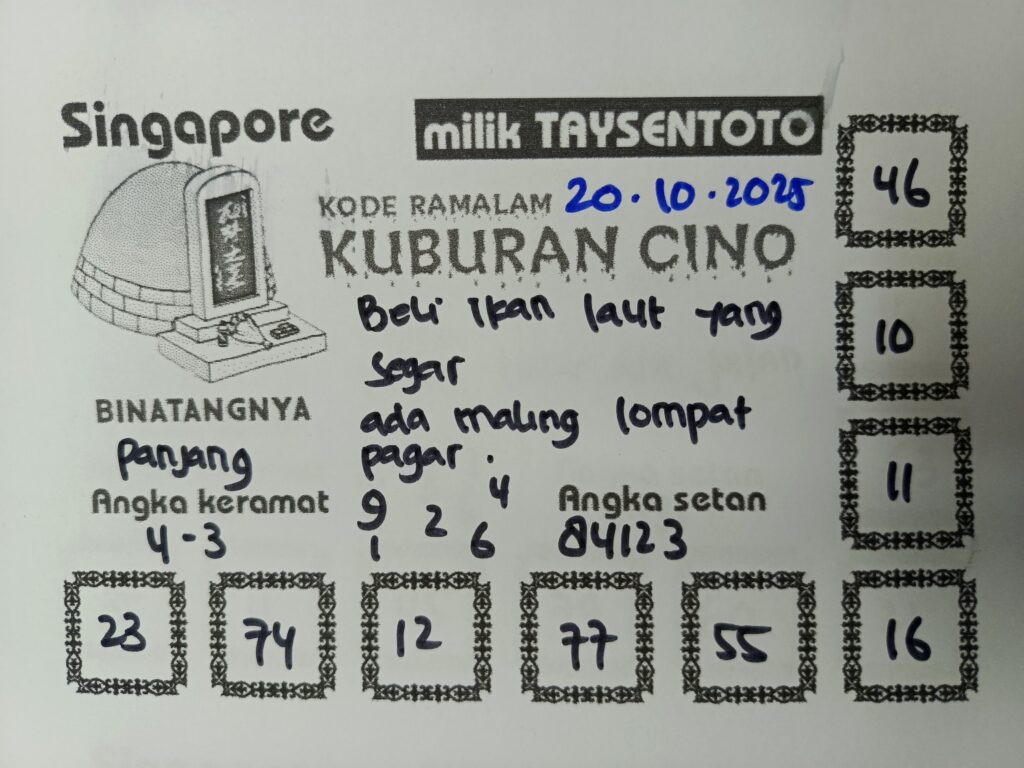 Singapore
milik TAYSENTOTO
KODE RAMALAM 20.10.2025
KUBURAN CINO
Beli ikan laut yang
segar
ada maling lompat
pagar.
BINATANGNYA
Panjang
Angka keramat
4-3
9 2 4
1 6
Angka setan
84123
46
10
11
23 74 12 77 55 16